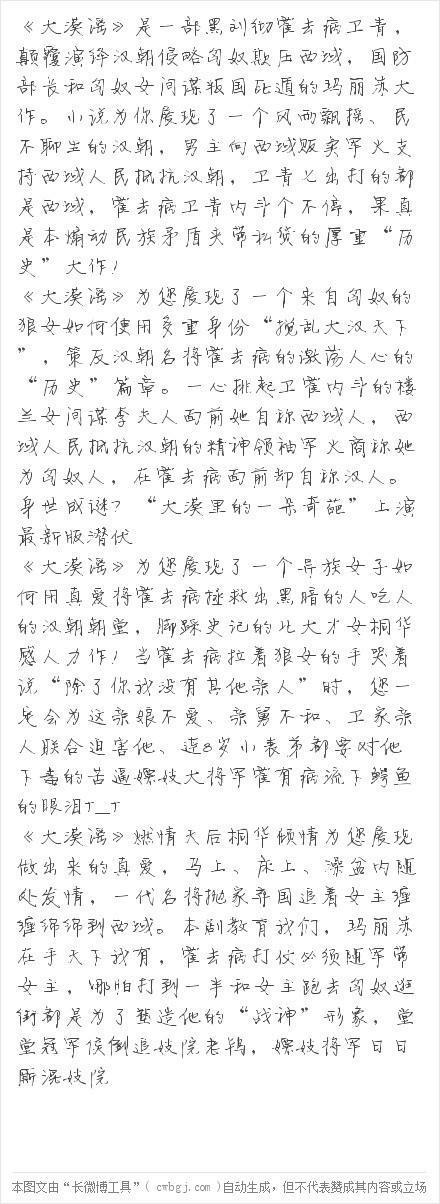 《大漠谣》是一部黑到彻霍去病卫青，
颠覆演绎汉朝侵略匈奴欺压西域，国防
部长和匈奴女间谍叛国死遁的玛丽苏大
作。小说为你展现了一个风雨飘摇、民
不聊生的汉朝，男主向西域贩卖军火支
持西域人民抵抗汉朝，卫青七出打的都
是西域，霍去病卫青内斗个不停，果真
是本煽动民族矛盾夹带私货的厚重“历
史”大作！
《大漠谣》为您展现了一个来自匈奴的
狼女如何使用多重身份“搅乱大汉天下
”，策反汉朝名将霍去病的激荡人心的
“历史”篇章。一心挑起卫霍内斗的楼
兰女间谍李夫人面前她自称西域人，西
域人民抵抗汉朝的精神领袖军火商称她
为匈奴人，在霍去病面前却自称汉人。
身世成谜？“大漠里的一朵奇葩”上演
最新版潜伏
《大漠谣》为您展现了一个异族女子如
何用真爱将霍去病拯救出黑暗的人吃人
的汉朝朝堂，脚踩史记的北大才女桐华
感人力作！当霍去病拉着狼女的手哭着
说“除了你我没有其他亲人”时，您一
定会为这亲娘不爱、亲舅不和、卫家亲
人联合迫害他、连8岁小表弟都要对他
下毒的苦逼嫖妓大将军霍有病流下鳄鱼
的眼泪T__T
《大漠谣》燃情天后桐华倾情为您展现
做出来的真爱，马上、床上、澡盆内随
处发情，一代名将抛家弃国追着女主缠
缠绵绵到西域。本剧教育我们，玛丽苏
在手天下我有，霍去病打仗必须随军带
女主，哪怕打到一半和女主跑去匈奴逛
街都是为了塑造他的“战神”形象，堂
堂冠军侯倒追妓院老鸨，嫖妓将军日日
厮混妓院
本图文由“长微博工具”( cwbgj.com )自动生成，但不代表赞成其内容或立场